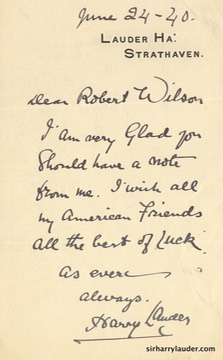 June 24-40.
LAUDER HA:
STRATHAVEN.
Dear Robert Wilson
I am very Glad you
Should have a note
from me. I wish all
my American Friends
all the best of Luck
as ever
always.
Harry Lauder
sirharrylauder.com